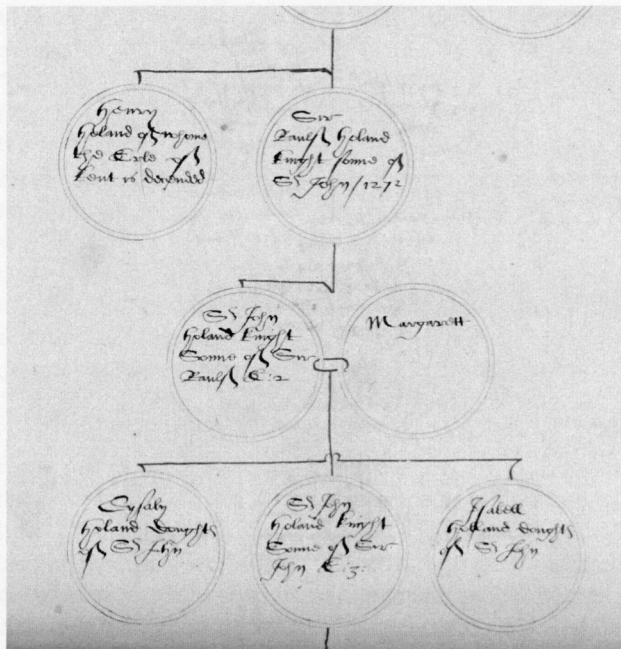 Henry
Holand of whome
the Erle of
Kent is decended
Sir
Raulf Holand
knight sonne of
Sr John / 1272
Sr John
Holand knight
Sonne of Sir
Raulf E: 2
Margarett
Cysaly
Holand doughtr
of Sr John
Sr John
Holand knight
Sonne of Sir
John E: 3:
Isabell
Holland doughtr
of Sr John